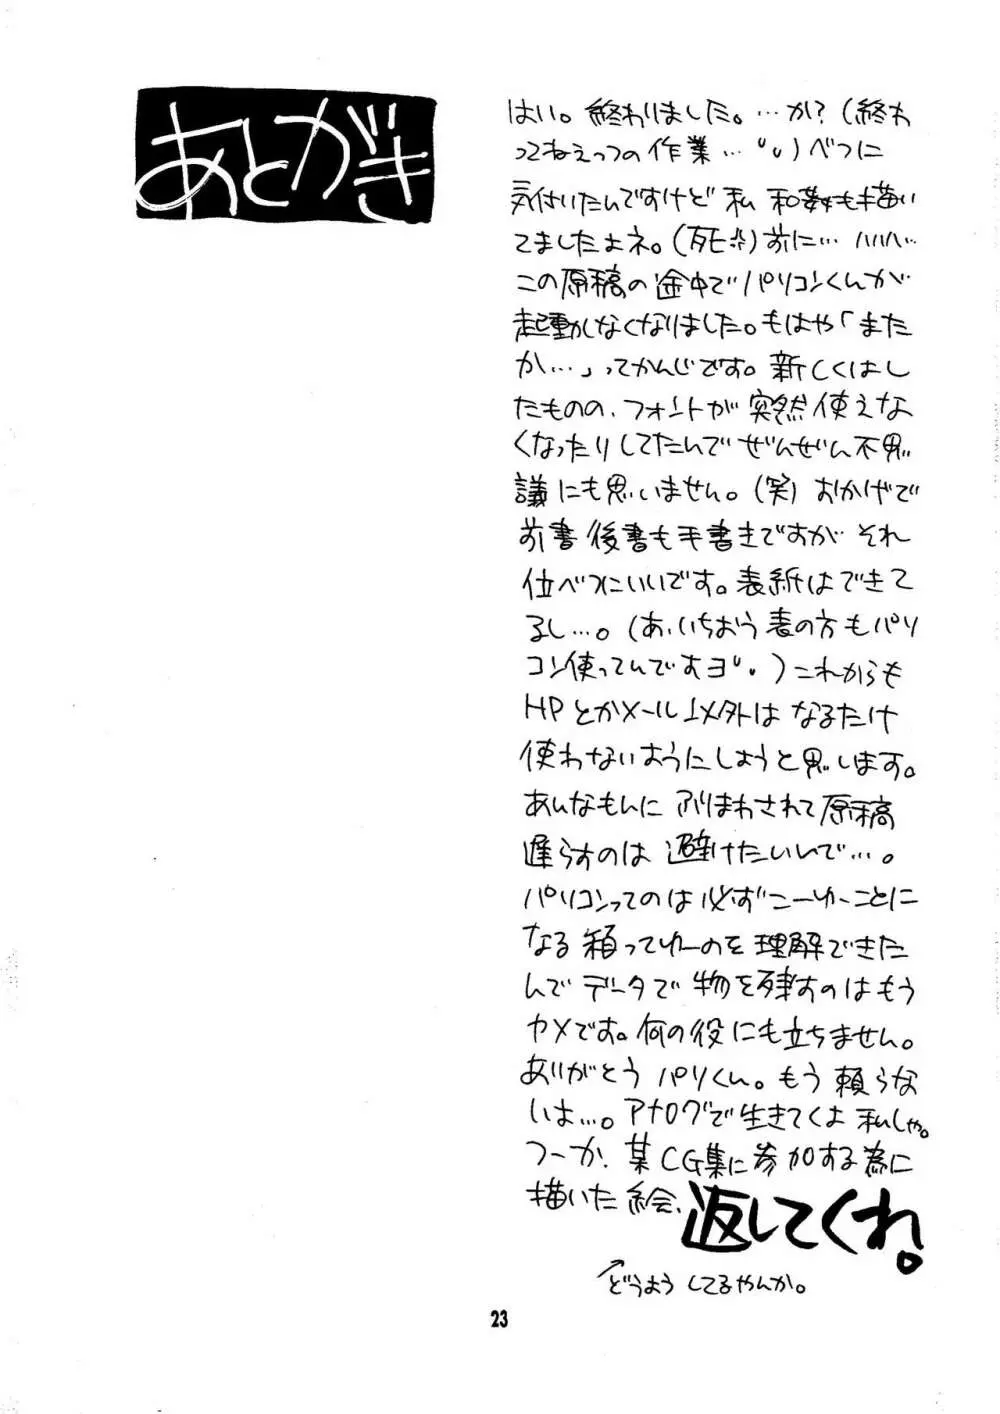 あとがき
はい。終わりました。…か?(終わ
ってねえっつの作業…)べつに
気付いたんですけど私和数も描い
てましたよネ。(死)前に…ハハハ…
この原稿の途中でパソコンくんが
起動しなくなりました。もはや「また
か…」ってかんじです。新しくはし
たものの、フォントが突然使えな
くなったりしてたんでぜんぜん不思
議にも思いません。(笑)おかげで
前書後書も手書きですが それ
位べつにいいです。表紙はできて
るし…。(あ、いちおう表の方もパソ
コン使ってんですヨ。)これからも
HPとかメール以外は なるたけ
使わないようにしようと思います。
あんなもんに ふりまわされて原稿
遅らすのは 避けたいんで…。
パソコンってのは必ずこーゆーことに
なる箱ってゆーのを理解できた
んでデータで物を残すのはもう
ヤメです。何の役にも立ちません。
ありがとう パソくん。もう頼らな
いよ…。アナログで生きてくよ 私しゃ。
つーか、某CG集に参加する為に
描いた絵、返してくれ。
↗どうよう してるやんか。
23